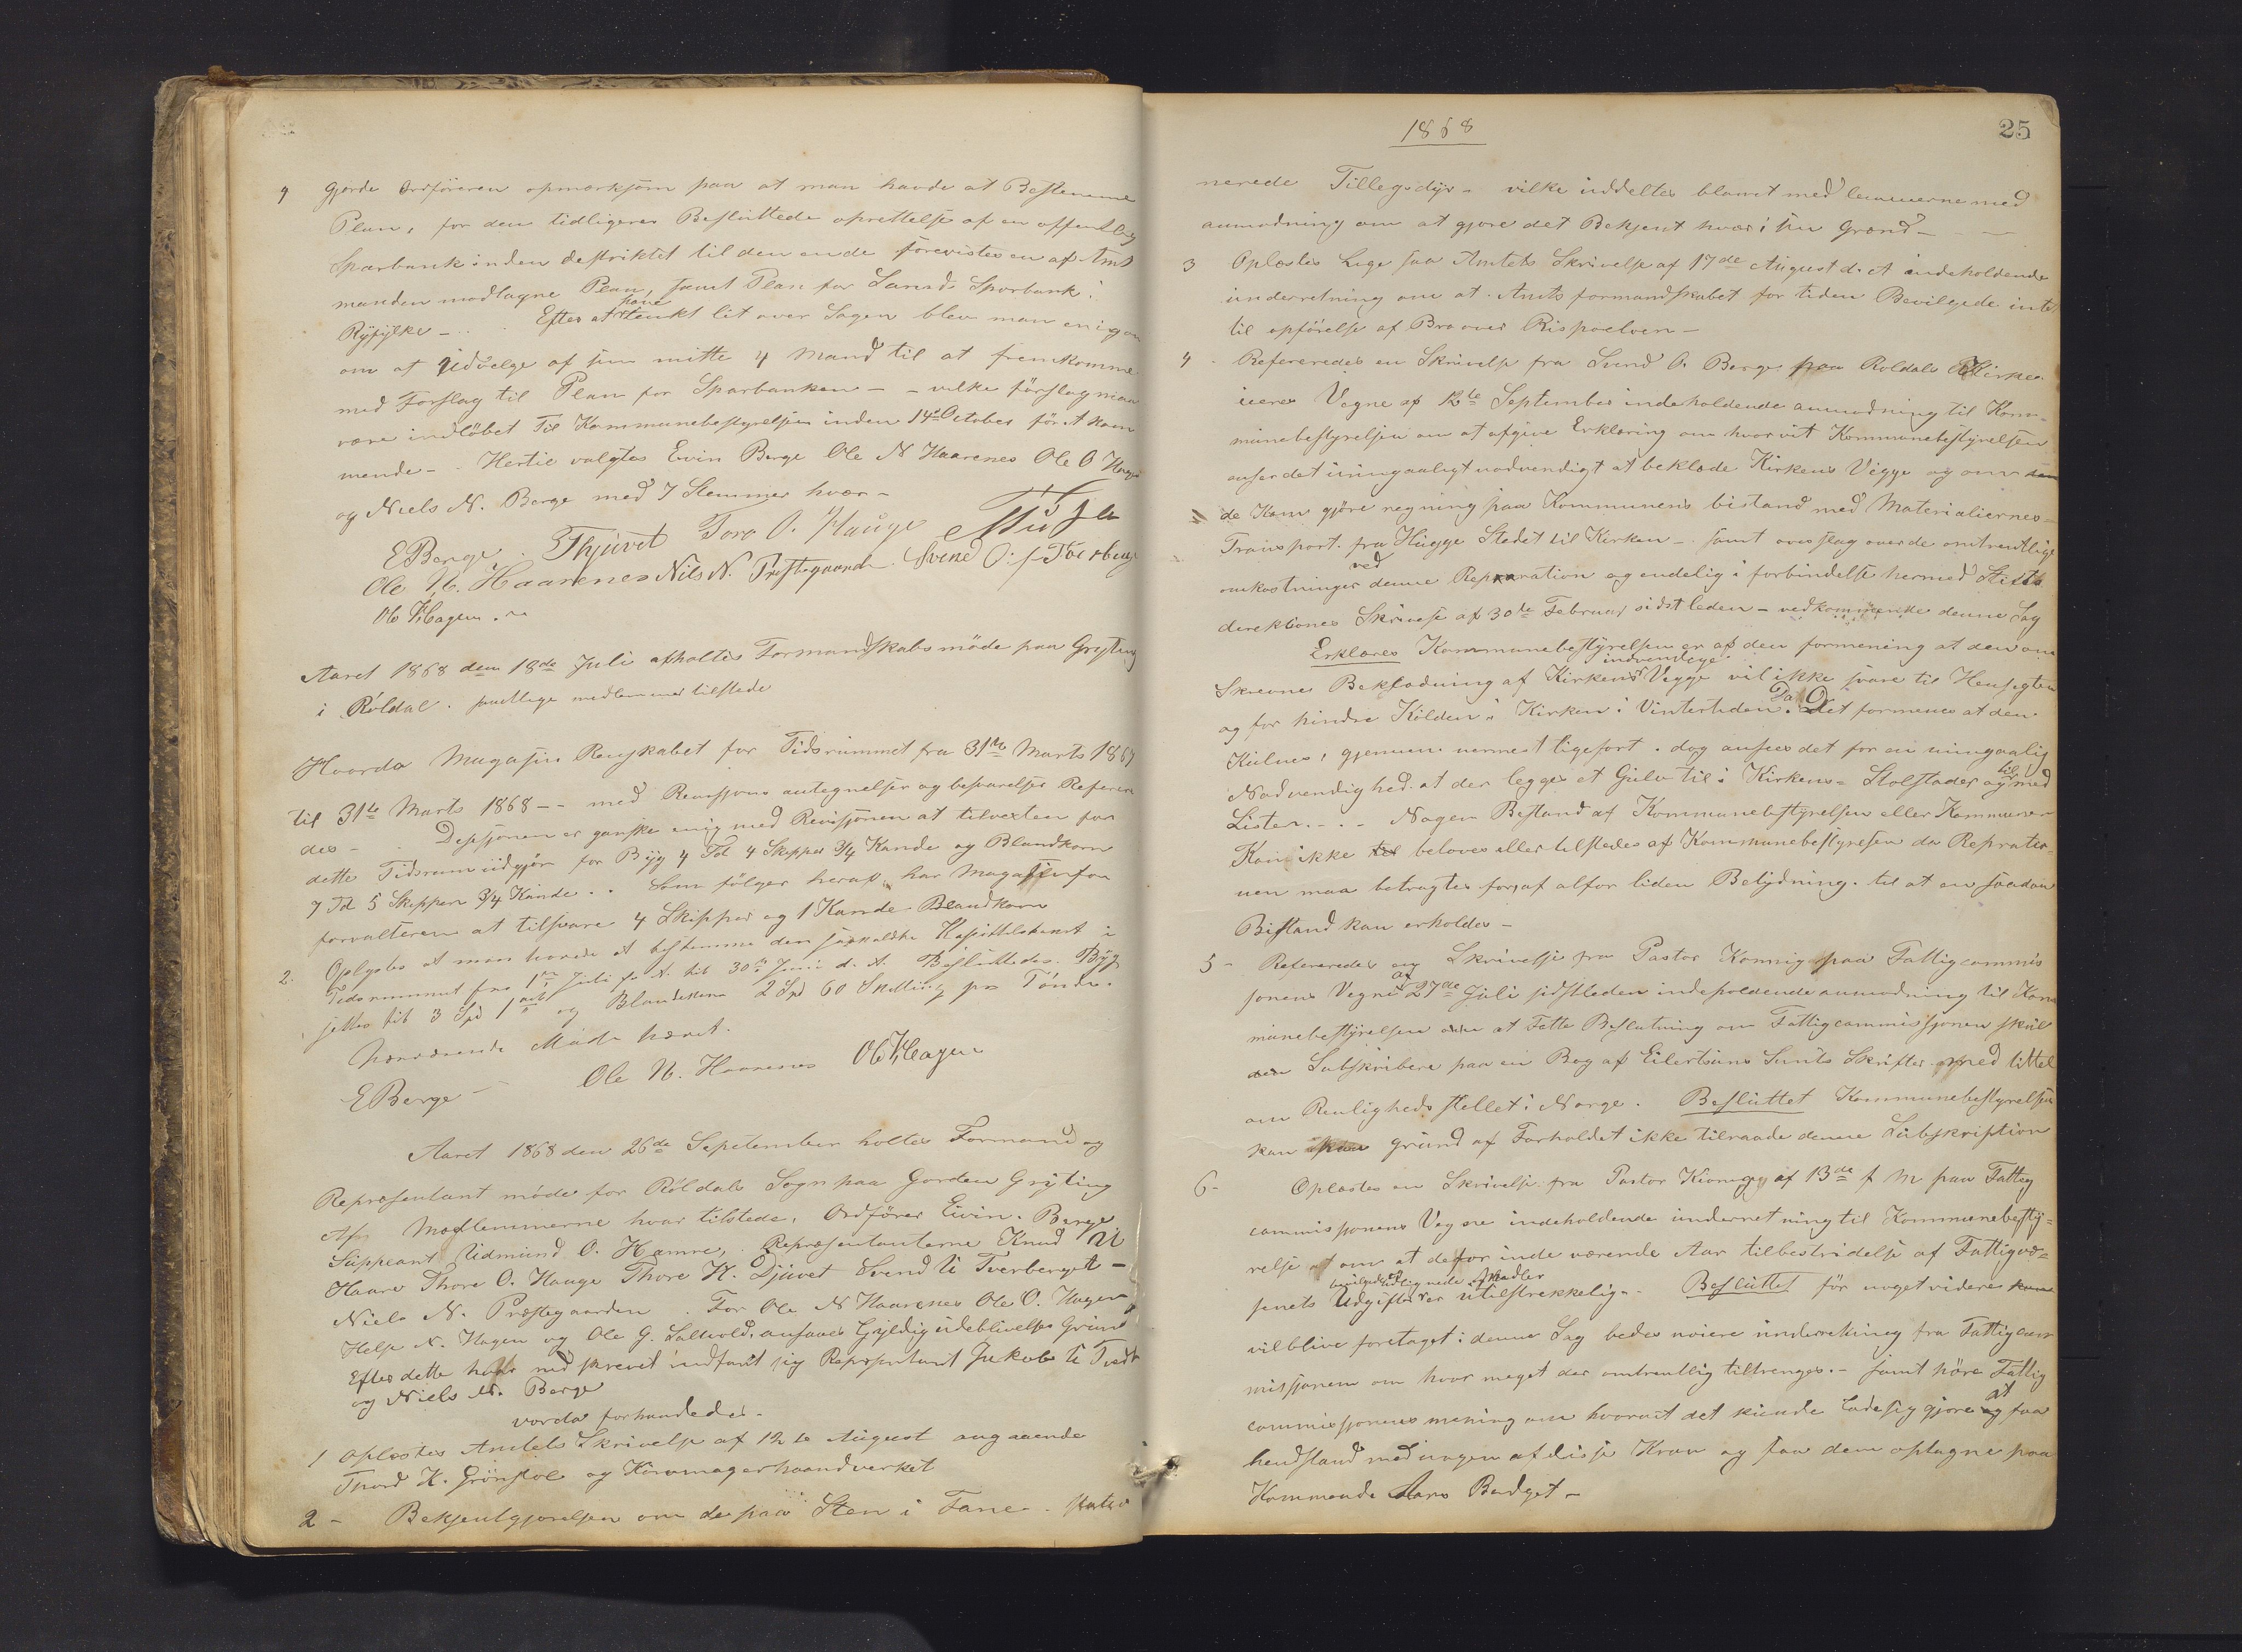 4 gjorde Ordföreren opmærksom paa at man havde at Bestemme
Plan, for den tidligere Besluttede oprettelse af en offentlig
Sparbank inden destriktet til den ende forevistes en af Amt
manden modtagne Plan, samt Plan for Sands Sparbank i
Ryfylke - . . Efter at have tænkt lit over Sagen blev man enig om
om at Udvelge af sin mitte 4 Mand til at fremkomme
med Forslag til Plan for Sparbanken - - vilke förslag maa
være indlöbet Til Kommunebestyrelsen inden 14de October först kom
mende - . Hertil valgtes Eivin Berge Ole N Haarenes Ole O Hagen
og Niels N. Berge med 7 Stemmer hver -
E Berge . Thjuvet Tore O. Hauge
Ole N. Haarenes Nils N. Prestegaard . Svend
Ole Hagen . -
Aaret 1868 den 18de Juli afholtes Formandskabsmöde paa Gryting
i Röldal . samtlige medlemmer tilstede
Hvorda Magasin Renskabet for Tidsrummet fra 31te Marts 1867
til 31te Marts 1868 - - med Revisjons antegnelser og besvarelser Referere
des - . Desisjonen er ganske enig med Revisjonen at tilvexten for
dette Tidsrum udgjör for Byg 4 Td 4 Skepper 3/4 Kande og Blandkorn
7 Td 5 Skepper 3/4 Kande . . Som fölger heraf har Magasin
forvalteren at tilsvare 4 Skepper og 1 Kande Blandkorn
2. Oplystes at man havde at bestemme den saakaldte Hospitalskorn i
Tidsrummet fra 1te Juli f. A. til 30te Juni d. A. Besluttedes. Byg
sættes til 3 Spd 1 ort og Blandkorn 2 Spd 60 Skilling pr Tönde.
Nærværende Möde hævet.
E Berge - Ole N. Haarenes Ole Hagen
Aaret 1868 den 26de September holtes Formand og
Representant möde for Röldals Sogn paa Gorden Gryting
Af Medlemmerne hvar tilstede, Ordförer Eivin. Berge
Suppleant Udmund O. Hamre, . Representanterne Knud N
Haare Thore O. Hauge Thore K. Djuvet Svend Tverberget -
Niels N. Præstegaarden . For Ole N Haarenes Ole O. Hagen
Helje N. Hagen og Ole G. Saltvold. ansaaes Gyldig udeblivelses Grund
Efter dette hvar nedskrevet indfant sig Representant Jakob
og Niels N. Berge
vorda forhandledes -
1 Oplæstes Amtets Skrivelse af 12te August angaaende
Thord K. Grönstöl og Kommagerhaandverket
2 - Bekjentgjorelsen om de paa Sten i Fane -
1868
25
nerede Tillegsdyr - vilke uddeltes blandt medlemmerne med
anmodning om at gjore det Bekjent hver i sin Grend -
3 Oplæstes Lige saa Amtets Skrivelse af 17de August d. A indeholdende
underretning om at Amtsformandskabet for tiden Bevilgede intet
til opförelse af Bro over Rispoelven -
4 - Refereredes en Skrivelse fra Svend O. Berge paa Roldals Kirkes
ieeres Vegne af 12te September indeholdende anmodning til Kom-
munebestyrelsen om at afgive Erklæring om hvorvit Kommunebestyrelsen
anser det uomgaaligt nödvendigt at beklæde Kirkens Vegge og om
de Kan gjöre regning paa Kommunens bistand med Materialiernes
Transport. fra Hugge Stedet til Kirken - . samt overslag over de omtrentlige
omkostninger ved denne Reparation og endelig i forbindelse hermed Stifts
direktiones Skrivelse af 30te Februar sidstleden - vedkommende denne Sag
Erklæres Kommunebestyrelsen er af den formening at den om
Skrevne Beklædning af Kirkens indvendige Vegge vil ikke svare til Hensigten
og for hindre Kölden i Kirken i Vintertiden. Da Det formenes at den
Kulnes, gjennem nermest ligefort . dog ansees det for en uomgaalig
Nödvendighed. at der legges et Gulv til i Kirkens Stolstader og til med
Lister. - . - Nogen Bestand af Kommunebestyrelsen eller Kommunen
Kan ikke beloves eller tilstedes af Kommunebestyresen da Repratio-
nen maa betragtes for af alfor liden Betydning. til at en saadan
Bistand kan erholdes -
5 - Refereredes en Skrivelse fra Pastor Konnig paa Fattigcommis
sjonens Vegne af 27de Juli sidstleden indeholdende anmodning til Kom
munebestyrelsen om at Fatte Beslutning om Fattigcommissjonen skul
Subskribere paa en Bog af Eilertsuns Sunts Skrifter med tittel
om Renligheds stellet i Norge. Besluttet Kommunebestyrelsen
kan paa grund af Forholdet ikke tilraade denne Subskription
6 - Oplæstes en Skrivelse fra Pastor Kionnig af 13de f M paa Fattig
commissjonens Vegne indeholdende underretning til Kommunebesty=
relse om at de for inde værende Aar til bestridelse af Fattigvæ=
senets Udgifter bevilgede er utilstrekkelig - . Besluttet för noget videre
vil blive foretaget i denne Sag bedes nöiere underretning fra Fattigcom
missjonen om hvor meget der omtrentlig tiltrenges. - samt höre Fattig
commissjonens mening om hvorvit det kunde lade sig gjöre at faa
henstand med nogen af disse Krav og faa dem optagne paa
Kommende Aars Budget -